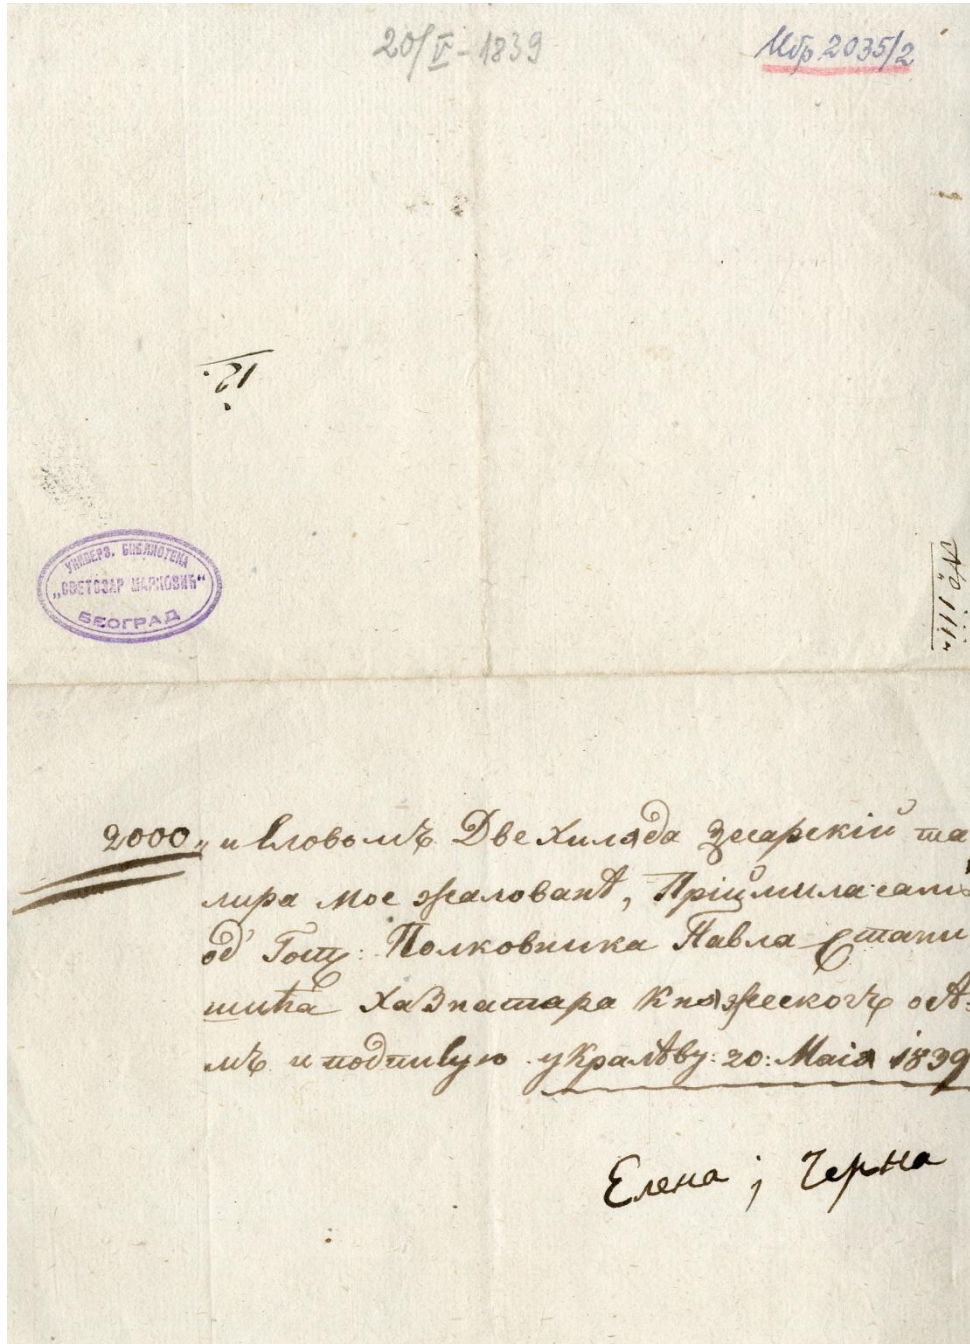 20/V-1839
Ибр. 2035/2
12.
УНИВЕРЗ. БИБЛИОТЕКА
„СВЕТОЗАР МАРКОВИЋ“
БЕОГРАД
2000„ и словомъ Две Хиляда Цесарскій та
лира мое жалованѣ, Пріймила самъ
од Госп: Полковника Павла Стани
шића Хазнатара Княжескогъ
мъ и подписую у Кралѣву: 20: Маіа 1839
Елена ; Черна